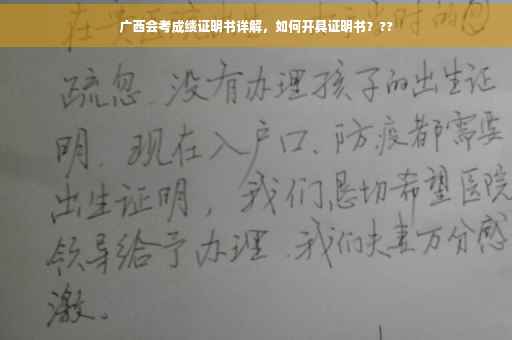 广西会考成绩证明书详解，如何开具证明书？??
在贵医院出生 当时的
疏忽、没有办理孩子的出生证
明、现在入户口、防疫都需要
出生证明，我们恳切希望医院
领导给予办理、我们夫妻万分感
激。